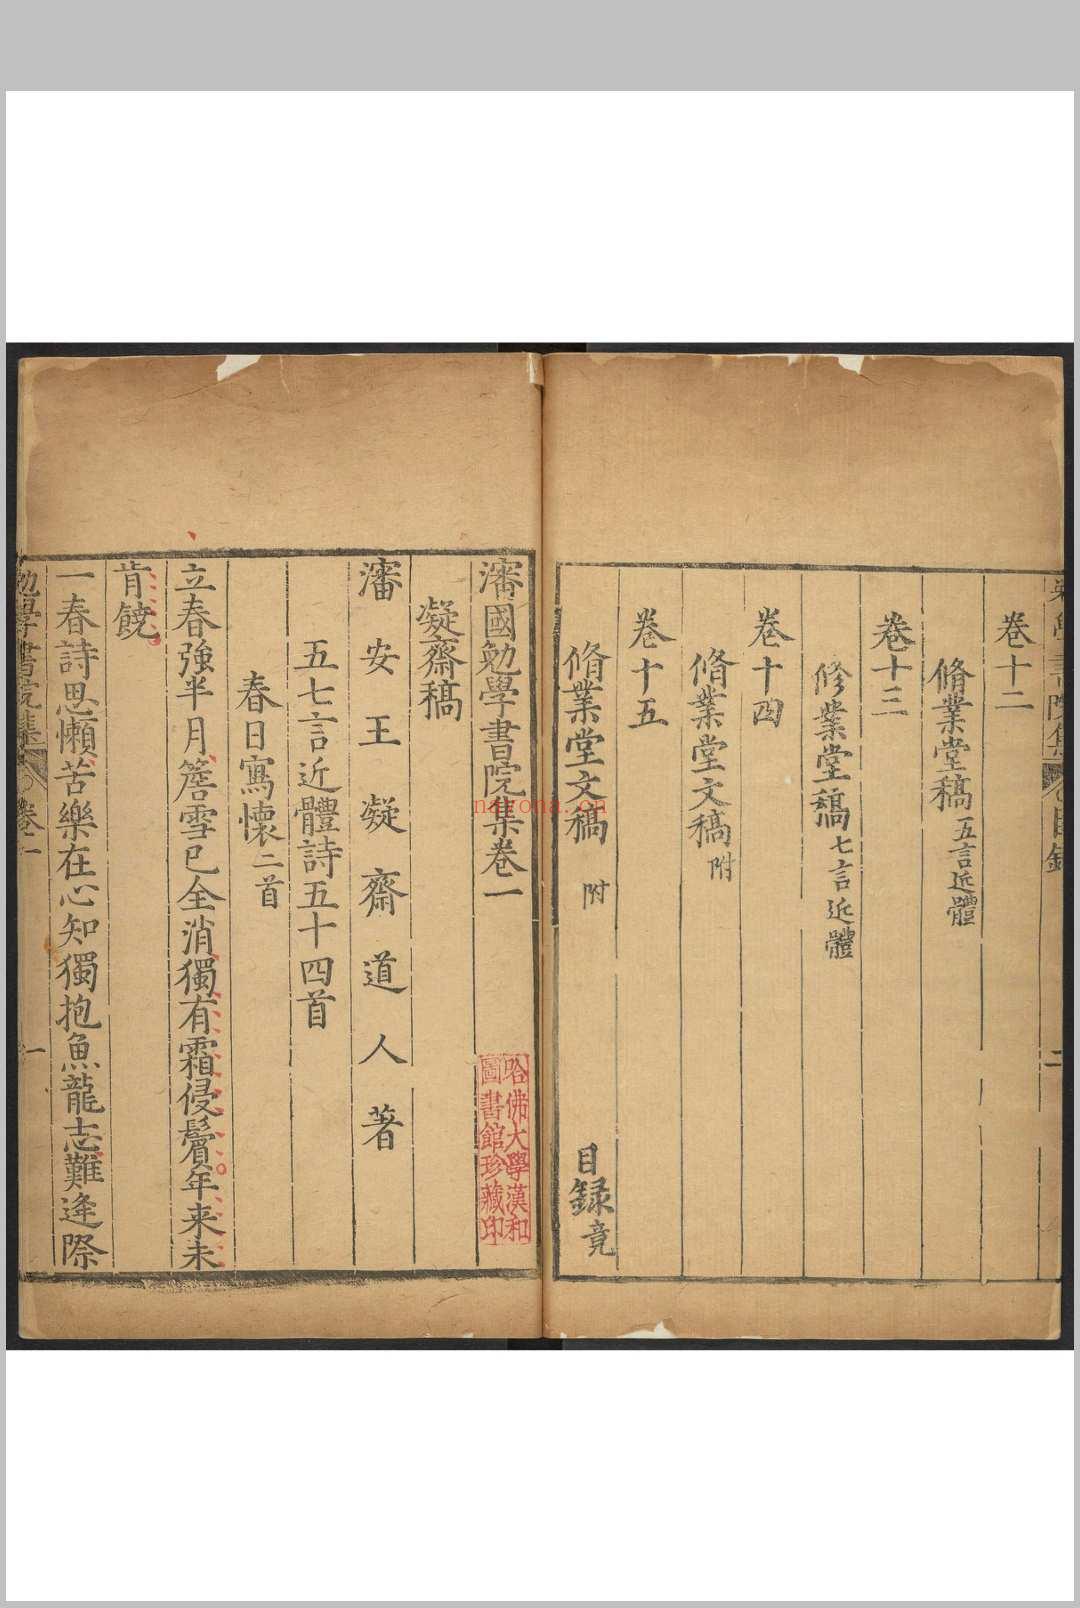 卷十二
脩業堂稿五言近體
卷十三
修業堂稿七言近體
卷十四
脩業堂文稿附
卷十五
脩業堂文稿 附
目録竟
瀋國勉學書院集卷一
凝齋稿
瀋安王凝齋道人著
五七言近體詩五十四首
春日寫懷二首
立春強半月簷雪已全消獨有霜侵鬢年来未
肯饒
一春詩思懶苦樂在心知獨抱魚龍志難逢際
勉學書院集 卷之一 一
哈佛大學漢和
圖書館珍藏印
nayona.cn